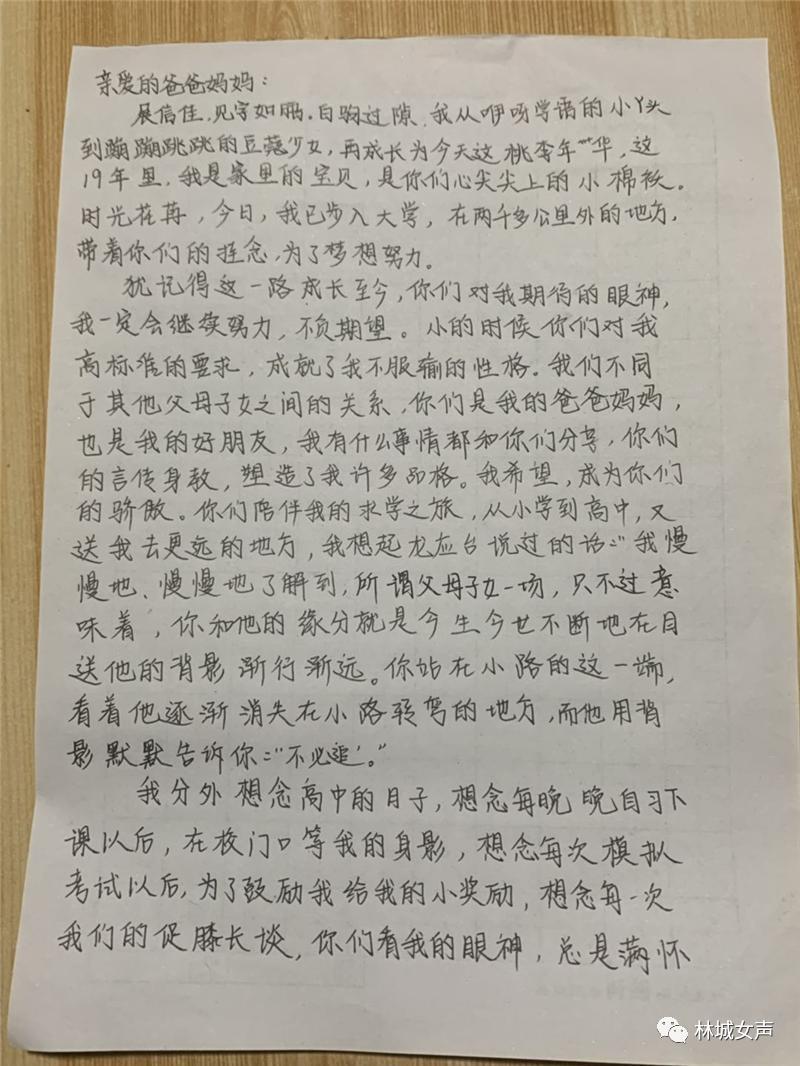 亲爱的爸爸妈妈：
展信佳，见字如晤。白驹过隙，我从咿呀学语的小丫头
到蹦蹦跳跳的豆蔻少女，再成长为今天这桃李年华，这
19年里，我是家里的宝贝，是你们心尖尖上的小棉袄。
时光荏苒，今日，我已步入大学，在两千多公里外的地方，
带着你们的挂念，为了梦想努力。
犹记得这一路成长至今，你们对我期待的眼神，
我一定会继续努力，不负期望。小的时候你们对我
高标准的要求，成就了我不服输的性格。我们不同
于其他父母子女之间的关系，你们是我的爸爸妈妈，
也是我的好朋友，我有什么事情都和你们分享，你们
的言传身教，塑造了我许多品格。我希望，成为你们
的骄傲。你们陪伴我的求学之旅，从小学到高中，又
送我去更远的地方，我想起龙应台说过的话：“我慢
慢地、慢慢地了解到，所谓父母子女一场，只不过意
味着，你和他的缘分就是今生今世不断地在目
送他的背影渐行渐远。你站在小路的这一端，
看着他逐渐消失在小路转弯的地方，而他用背
影默默告诉你：“不必追’。”
我分外想念高中的日子，想念每晚晚自习下
课以后，在校门口等我的身影，想念每次模拟
考试以后，为了鼓励我给我的小奖励，想念每一次
我们的促膝长谈，你们看我的眼神，总是满怀
林城女声